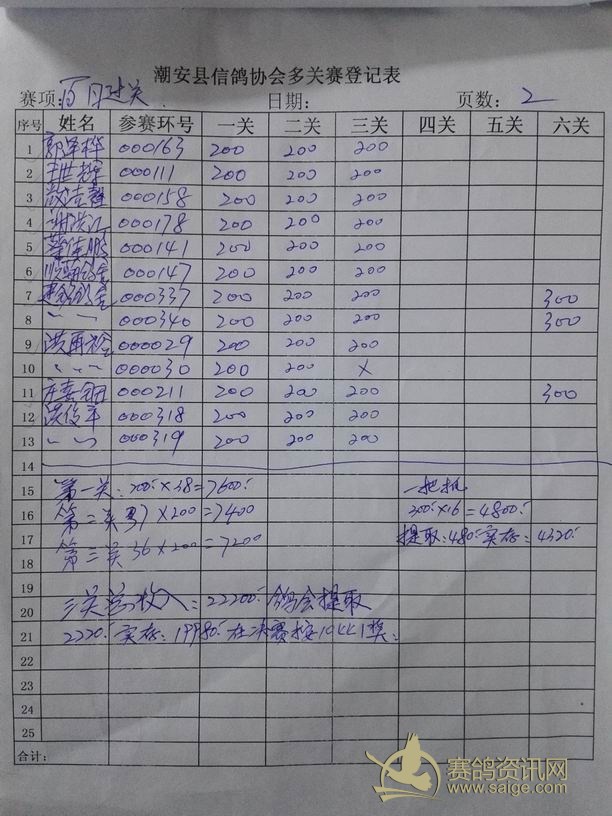 潮安县信鸽协会多关赛登记表
赛项: 百月过关 日期: 页数: 2
序号 姓名 参赛环号 一关 二关 三关 四关 五关 六关
1 000163 200 200 200
2 000111 200 200 200
3 000158 200 200 200
4 谢洪江 000178 200 200 200
5 000141 200 200 200
6 000147 200 200 200
7 000337 200 200 200 300
8 〃 〃 000340 200 200 200 300
9 洪再 000029 200 200 200
10 〃 〃 000030 200 200 ×
11 000211 200 200 200 300
12 洪俊 000318 200 200 200
13 〃 〃 000319 200 200 200
14
15 第一关: 200×38=7600 一把抓
16 第二关 37×200=7400 300×16=4800
17 第三关 36×200=7200 提取:480 实存:4320
18
19
20 三关总收入:22200 鸽会提取
21 2220 实存:19980 在决赛按10比1奖
22
23
24
25
合计:
赛鸽资讯网
www.saige.com